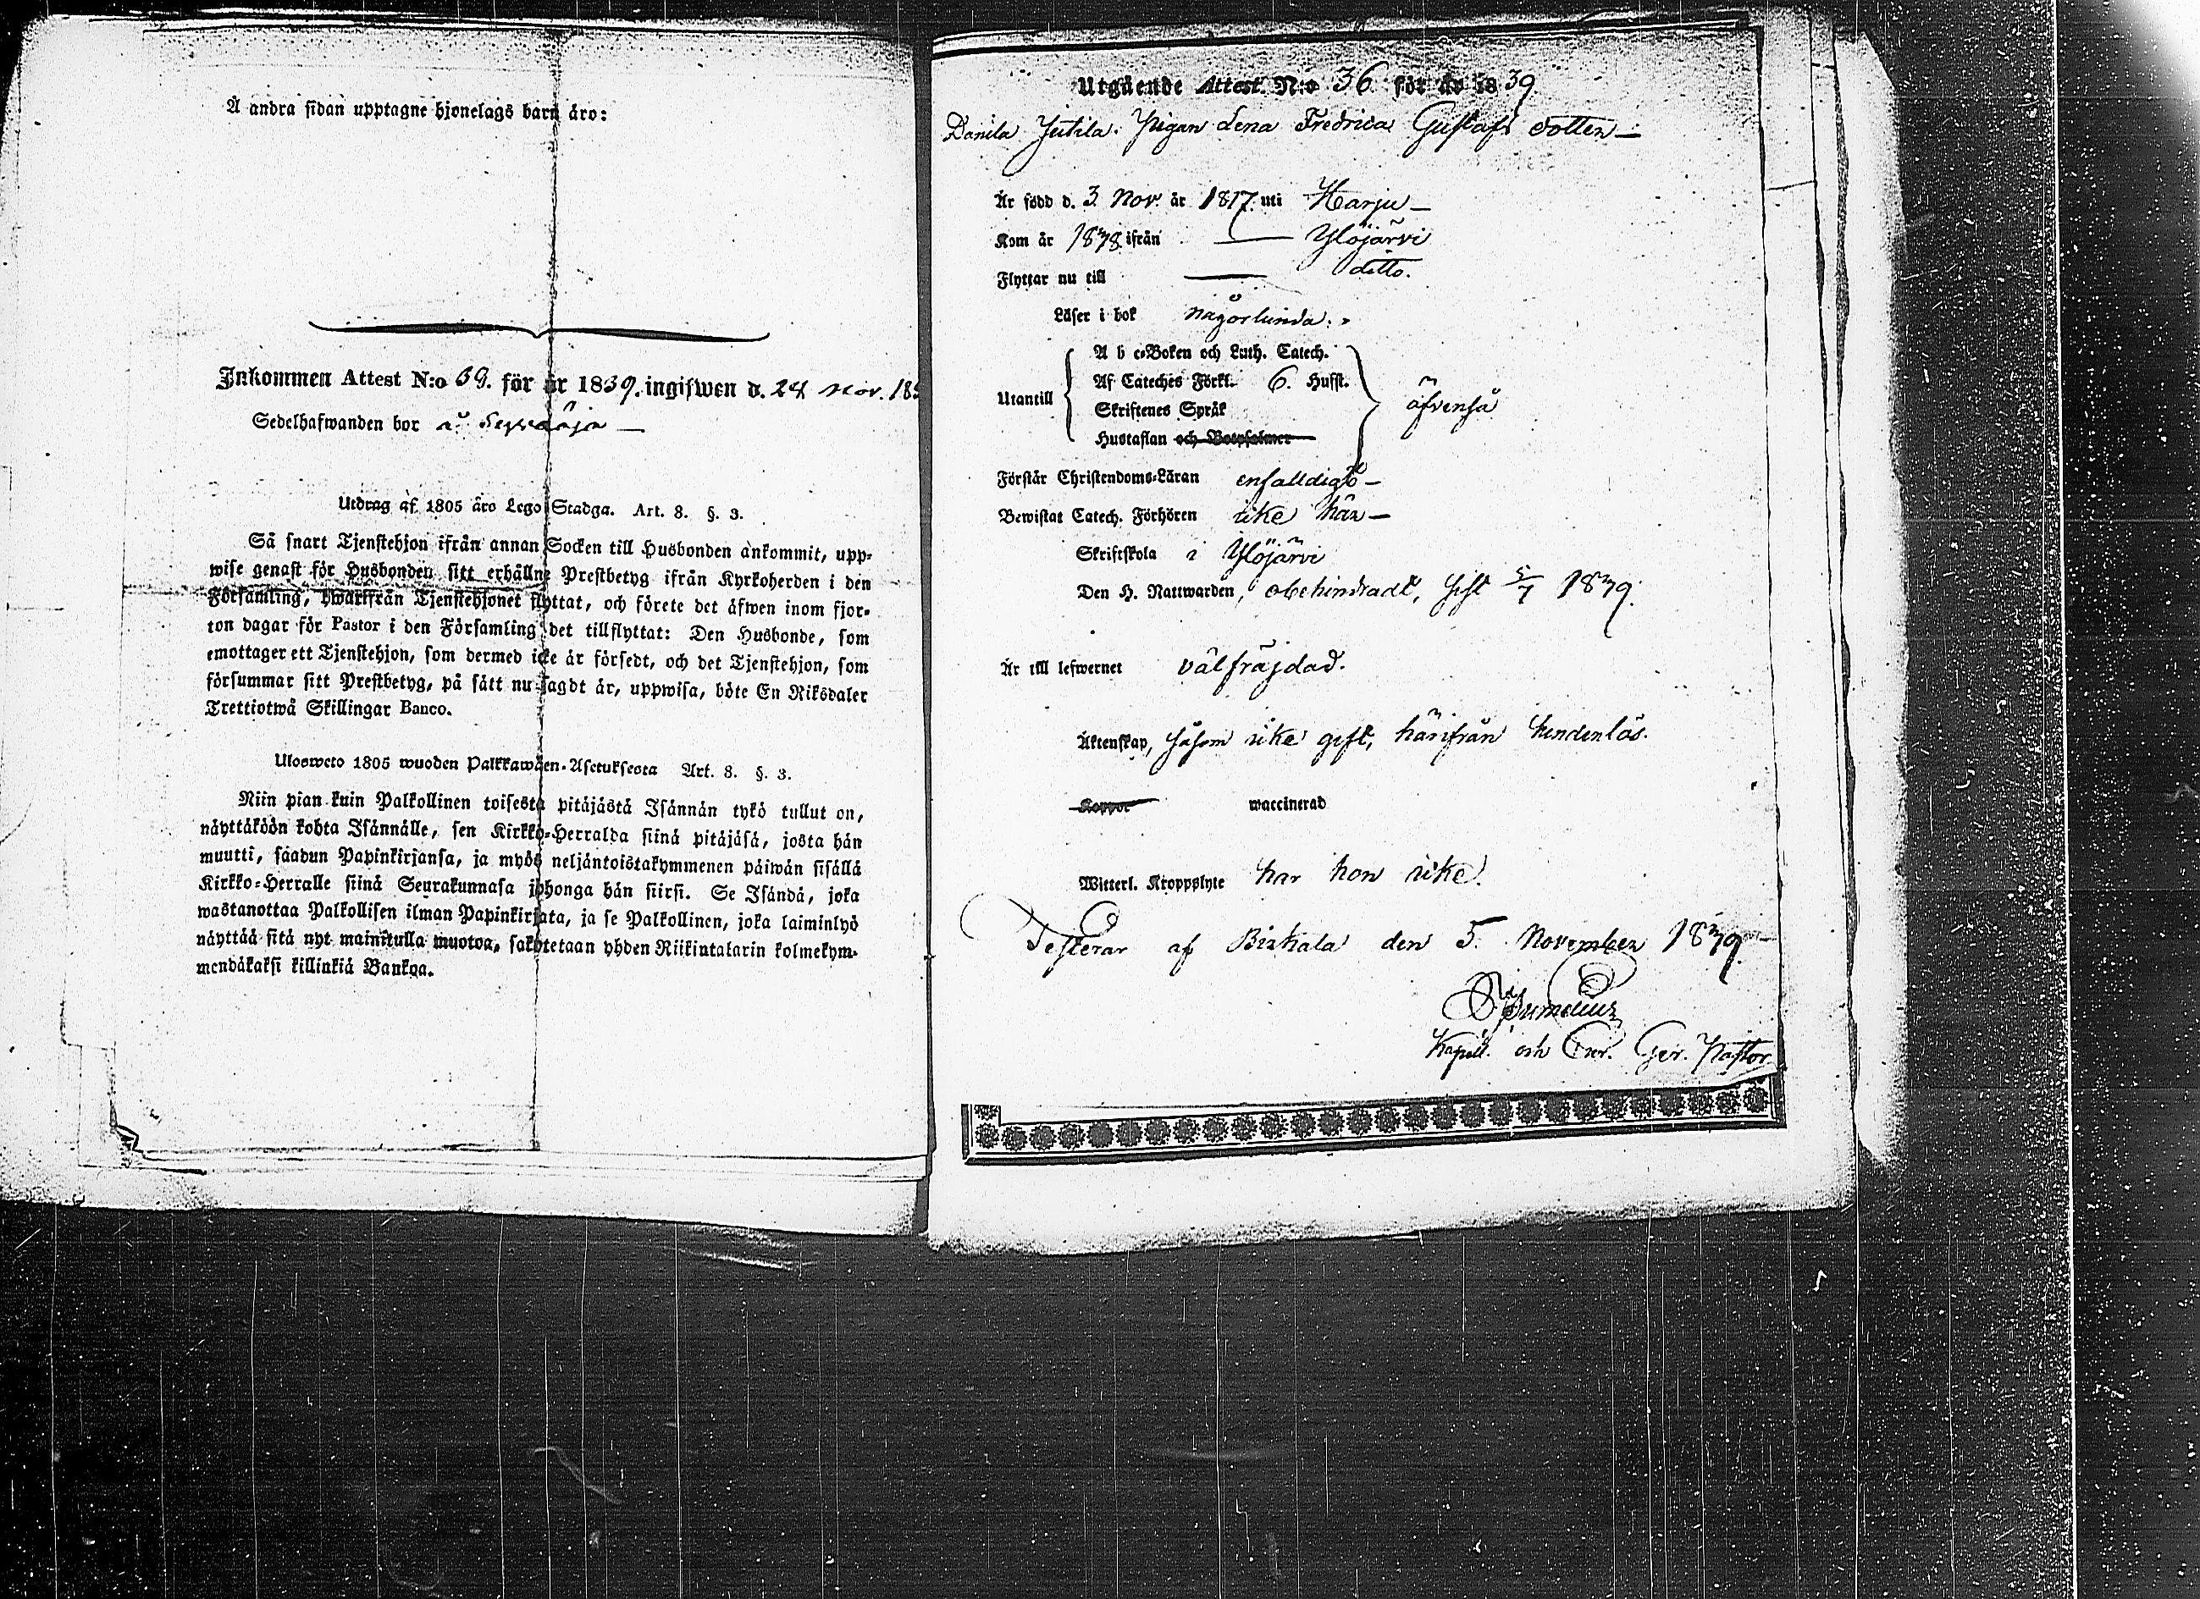 Å andra sidan upptagne hjonelags barn äro:
Inkommen Attest N:o 39. för år 1839. ingifwen d. 24 Nov. 183
Sedelhafwanden bor å
Utdrag af 1805 års Lego Stadga. Art. 8. §. 3.
Så snart Tjenstehjon ifrån annan Socken till Husbonden ankommit, upp-
wise genast för Husbonden sitt erhållne Prestbetyg ifrån Kyrkoherden i den
Församling, hwarifrån Tjenstehjonet flyttat, och förete det äfwen inom fjor-
ton dagar för Pastor i den Församling det tillflyttat: Den Husbonde, som
emottager ett Tjenstehjon, som dermed icke är försedt, och det Tjenstehjon, som
försummar sitt Prestbetyg, på sätt nu sagdt är, uppwisa, böte En Riksdaler
Trettiotwå Skillingar Banco.
Ulosweto 1805 wuoden Palkkawäen-Asetuksesta Art. 8. §. 3.
Niin pian kuin Palkollinen toisesta pitäjästä Isännän tykö tullut on,
näyttäköön kohta Isännälle, sen Kirkko-Herralda siinä pitäjäsä, josta hän
muutti, saadun Papinkirjansa, ja myös neljäntoistakymmenen päiwän sisällä
Kirkko-Herralle siinä Seurakunnasa johonga hän siirsi. Se Isändä, joka
wastanottaa Palkollisen ilman Papinkirjata, ja se Palkollinen, joka laiminlyö
näyttää sitä nyt mainitulla muotoa, sakotetaan yhden Riikintalarin kolmekym-
mendäkaksi killinkiä Bankoa.
Utgående Attest. N:o 36. för år 1839.
Danila Jutila. Pigan Lena Fredrica Gustafs dotter —
Är född d. 3. Nov. år 1817. uti Harju —
Kom år 1838 ifrån — Ylöjärvi
Flyttar nu till — ditto.
Läser i bok någorlunda.
A b c-Boken och Luth. Catech.
Af Cateches Förkl. 6. Hufst.
Utantill äfvenså
Skriftenes Språk
Hustaflan och Botpsalmer
Förstår Christendoms-Läran enfalldigt —
Bewistat Catech. Förhören icke här —
Skriftskola i Ylöjärvi
Den H. Nattwarden, obehindradt, sist 5/7 1839.
Är till lefwernet välfräjdad.
Äktenskap, såsom icke gift, härifrån hinderlös.
Koppor waccinerad
Witterl. Kroppslyte har hon icke.
Testerar af Birkala den 5. November 1839.
Kapell. och Ger. Pastor.